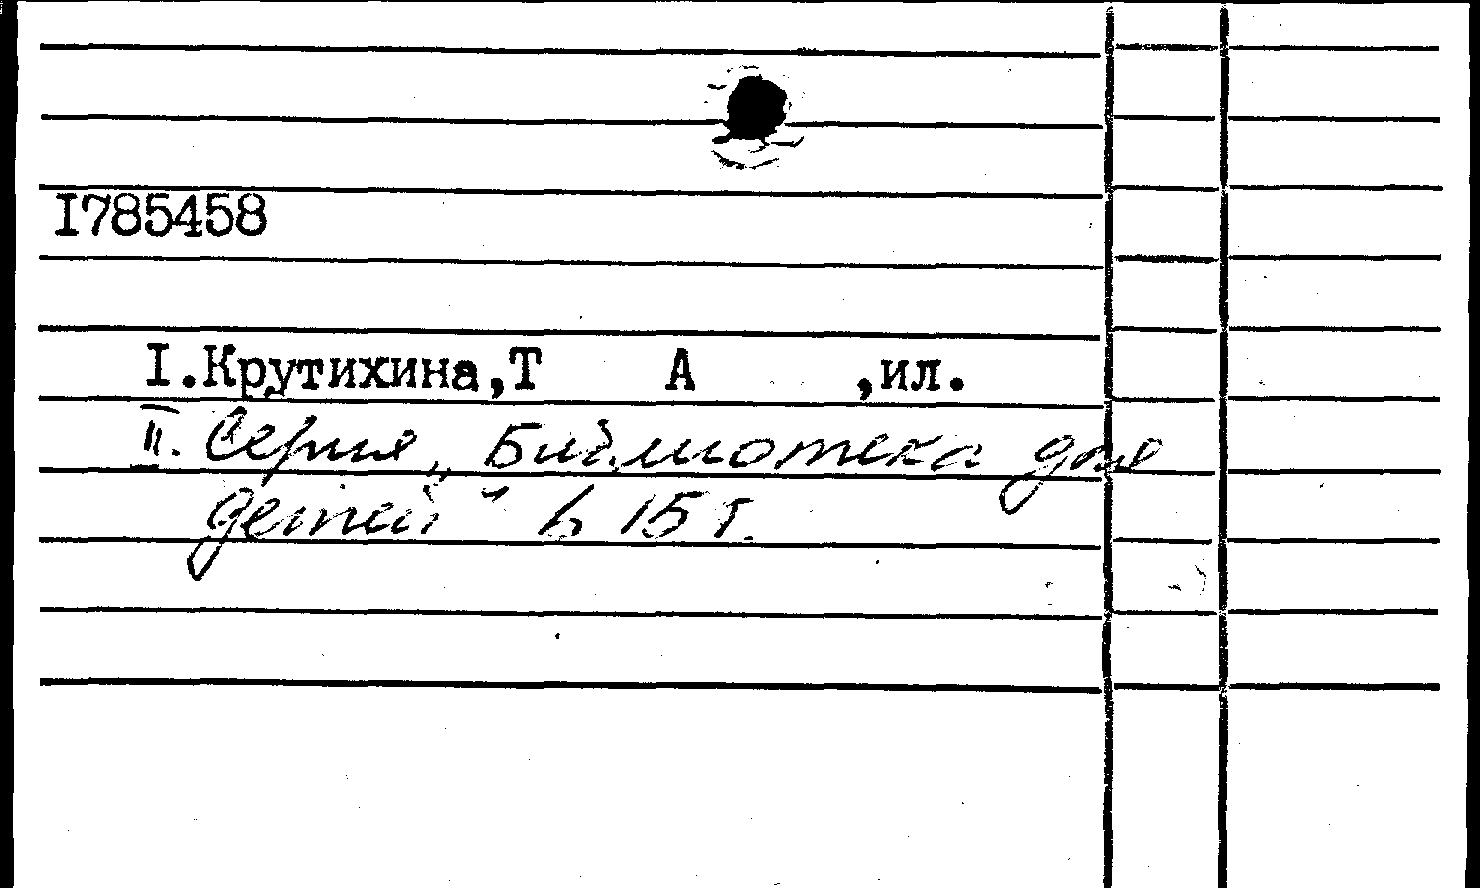 I785458
I.Крутихина,Т А ,ил.
II. Серия „Библиотека для
детей" в 15 т.